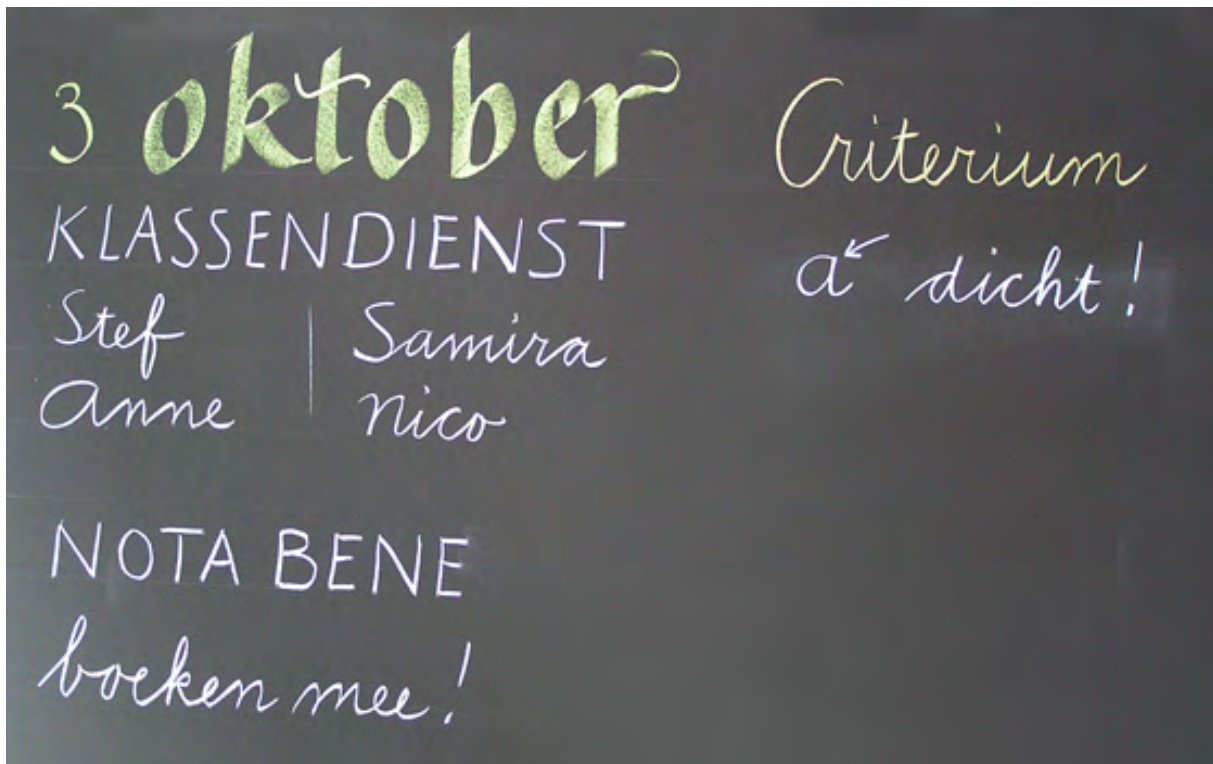 3 oktober
KLASSENDIENST
Stef | Samira
Anne | Nico
NOTA BENE
boeken mee!
Criterium
a dicht!